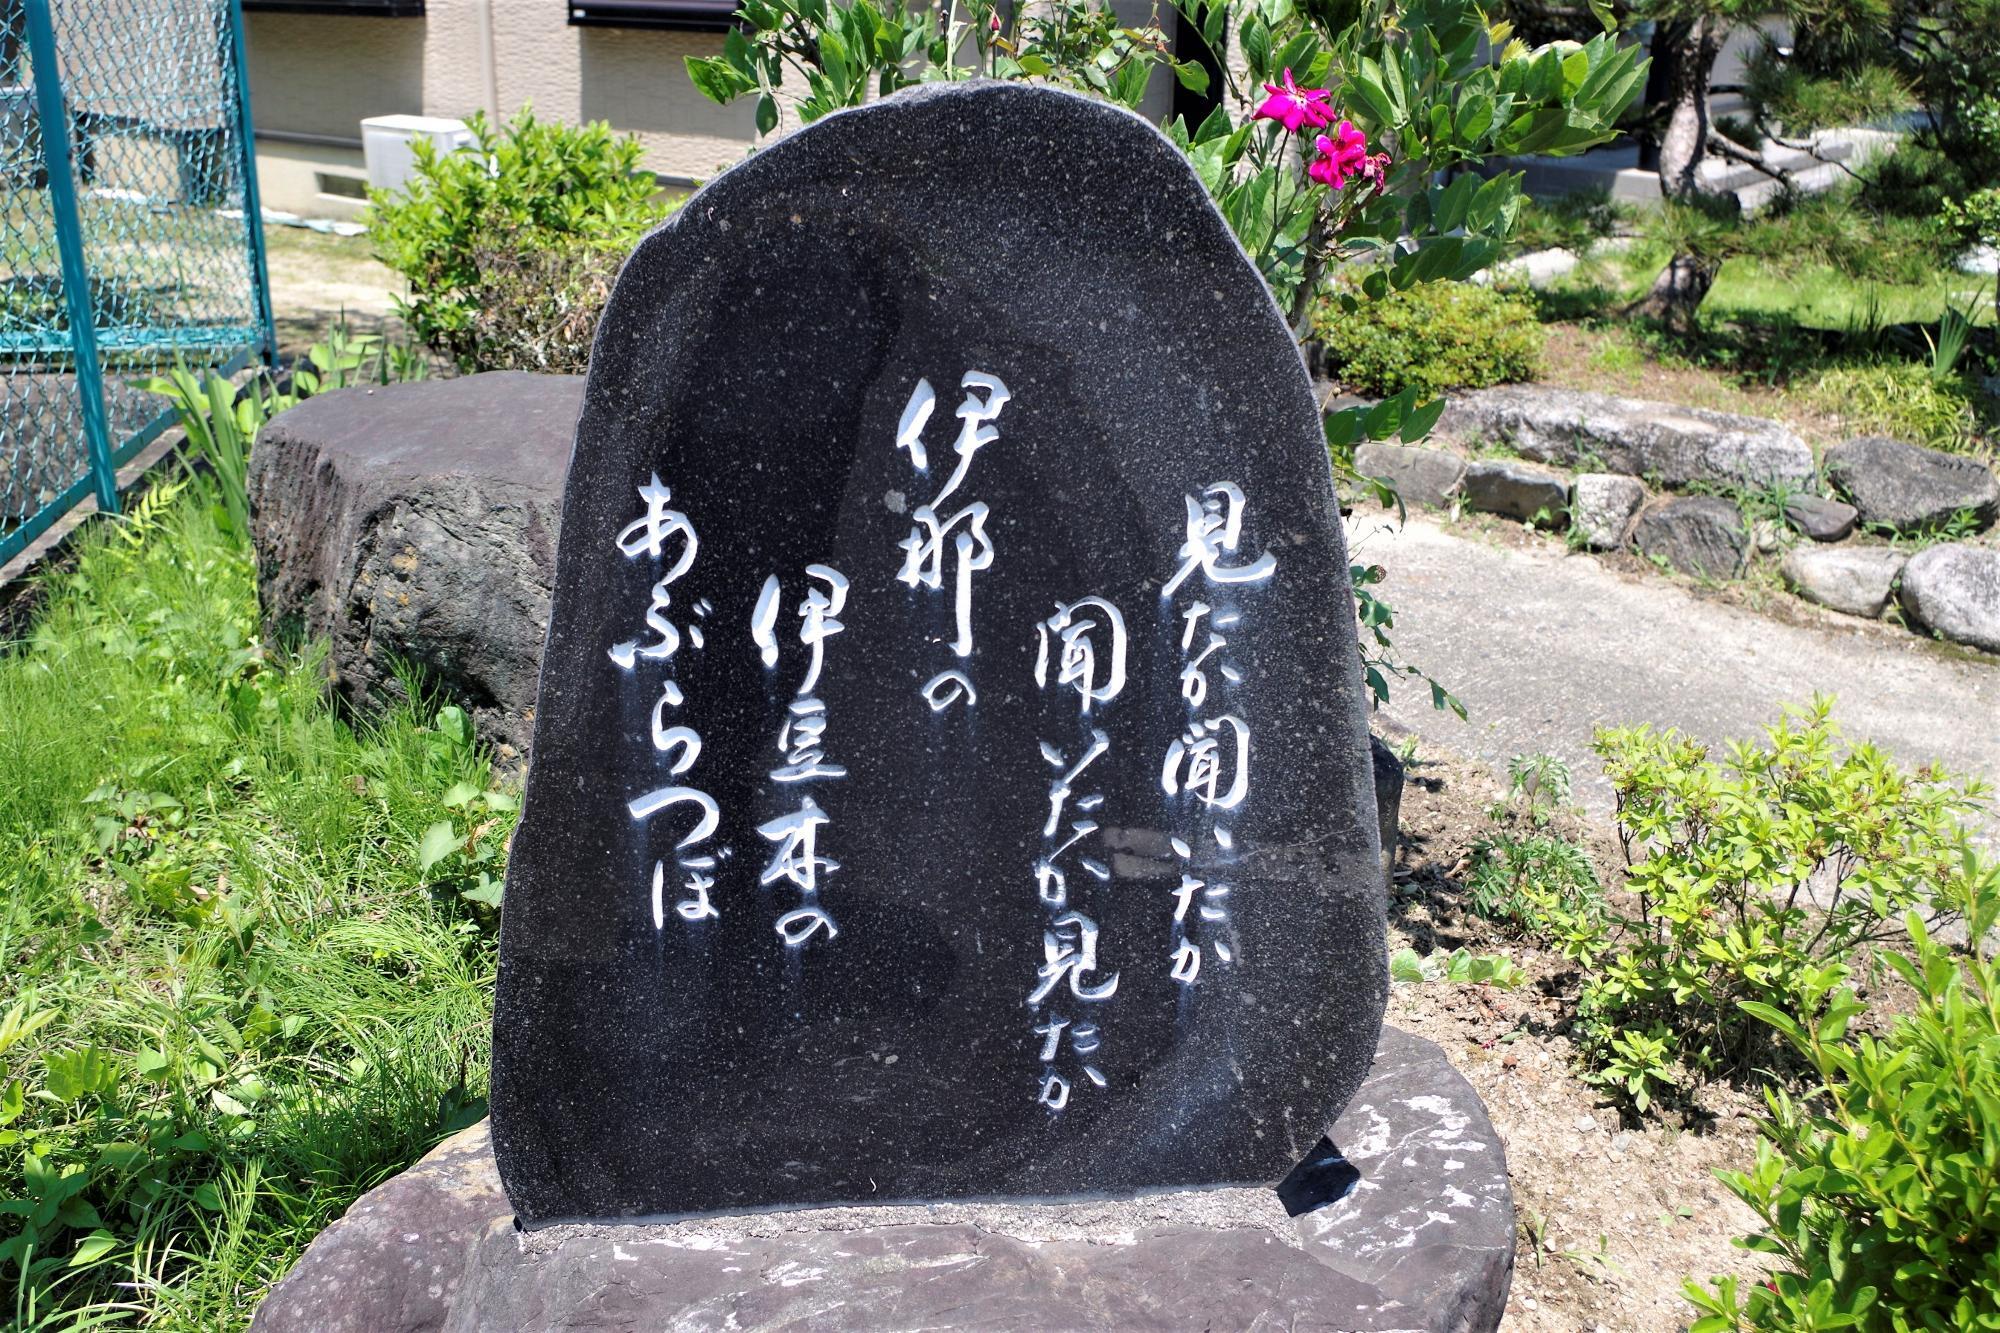 見たか聞いたか
聞いたか見たか
伊那の
伊豆木の
あぶらつぼ